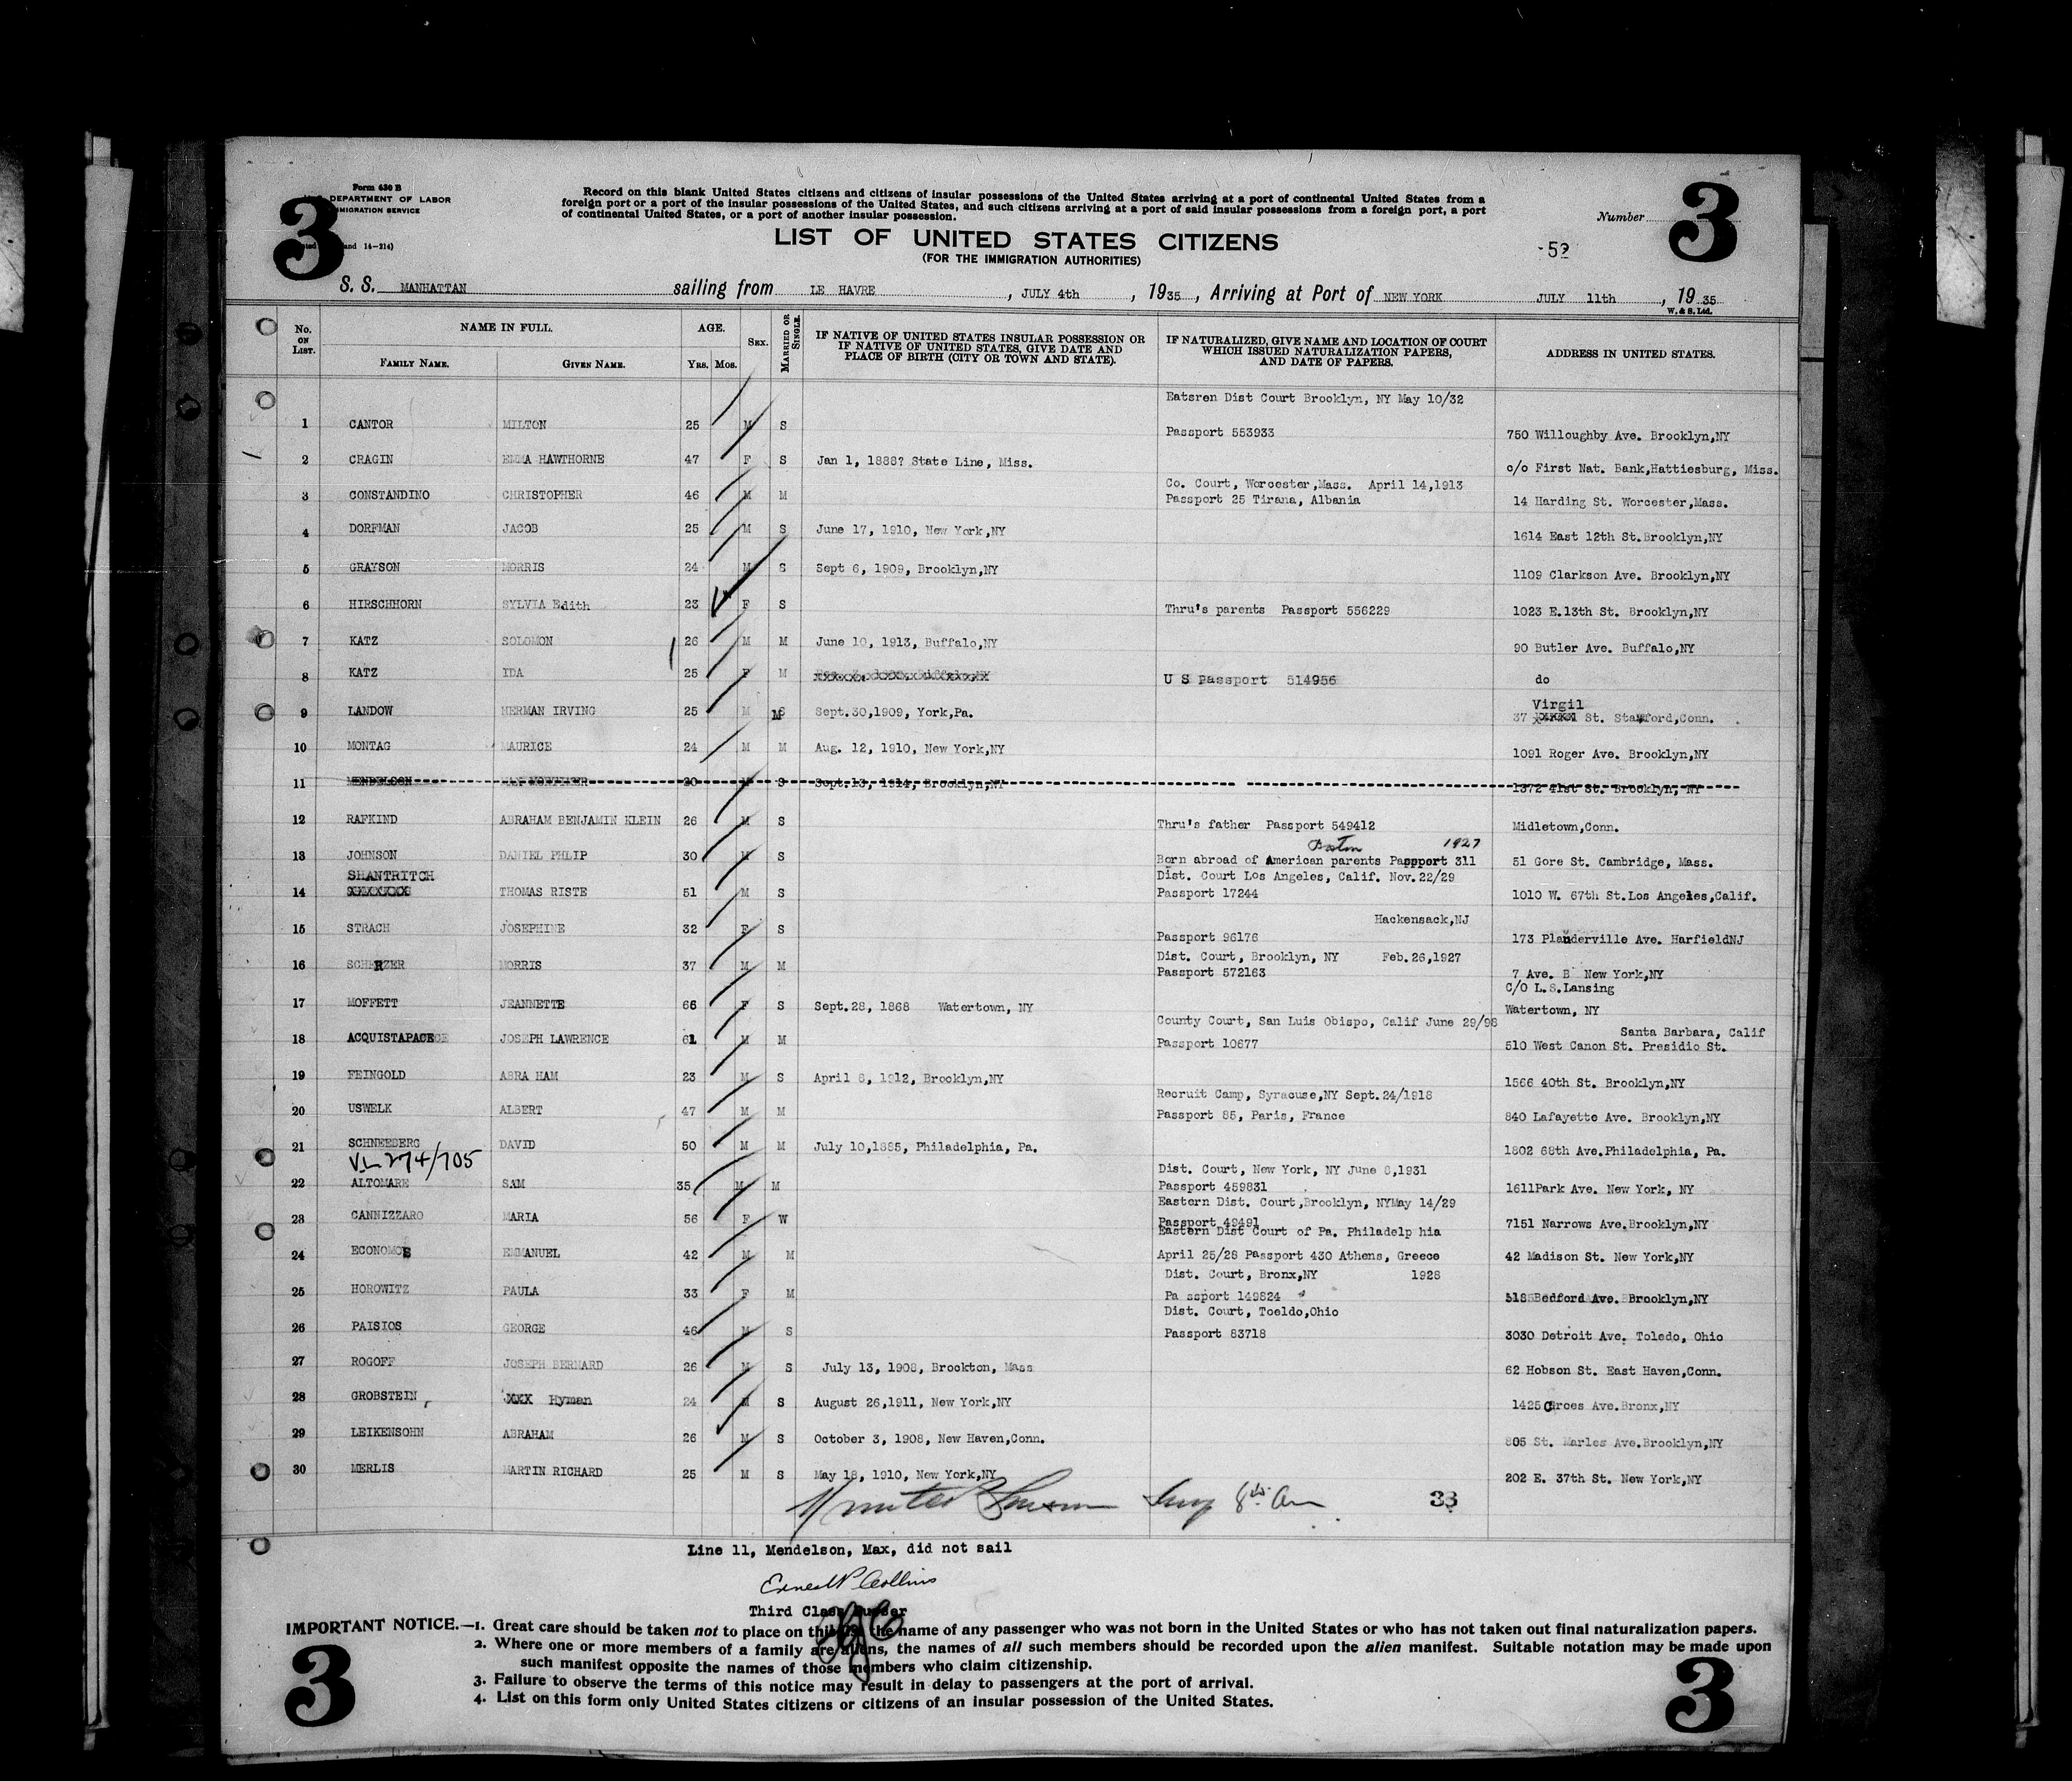 3
Form 630 B
DEPARTMENT OF LABOR
IMMIGRATION SERVICE
and 14-214)
Record on this blank United States citizens and citizens of insular possessions of the United States arriving at a port of continental United States from a
foreign port or a port of the insular possessions of the United States, and such citizens arriving at a port of said insular possessions from a foreign port, a port
of continental United States, or a port of another insular possession.
Number
3
LIST OF UNITED STATES CITIZENS
(FOR THE IMMIGRATION AUTHORITIES)
-52
S. S. MANHATTAN sailing from LE HAVRE, JULY 4th, 1935, Arriving at Port of NEW YORK JULY 11th, 19 35
W. & S. Ltd.
No. ON LIST. NAME IN FULL. FAMILY NAME. GIVEN NAME. AGE. YRS. MOS. SEX. MARRIED OR SINGLE. IF NATIVE OF UNITED STATES INSULAR POSSESSION OR IF NATIVE OF UNITED STATES, GIVE DATE AND PLACE OF BIRTH (CITY OR TOWN AND STATE). IF NATURALIZED, GIVE NAME AND LOCATION OF COURT WHICH ISSUED NATURALIZATION PAPERS, AND DATE OF PAPERS. ADDRESS IN UNITED STATES.
Eatsren Dist Court Brooklyn, NY May 10/32
1 CANTOR MILTON 25 M S Passport 553933 750 Willoughby Ave. Brooklyn,NY
2 CRAGIN EMMA HAWTHORNE 47 F S Jan 1, 1888? State Line, Miss. c/o First Nat. Bank,Hattiesburg, Miss.
Co. Court, Worcester,Mass. April 14,1913
3 CONSTANDINO CHRISTOPHER 46 M M Passport 25 Tirana, Albania 14 Harding St. Worcester,Mass.
4 DORFMAN JACOB 25 M S June 17, 1910, New York,NY 1614 East 12th St.Brooklyn,NY
5 GRAYSON MORRIS 24 M S Sept 6, 1909, Brooklyn,NY 1109 Clarkson Ave. Brooklyn,NY
6 HIRSCHHORN SYLVIA Edith 23 F S Thru's parents Passport 556229 1023 E.13th St. Brooklyn,NY
7 KATZ SOLOMON 26 M M June 10, 1913, Buffalo,NY 90 Butler Ave. Buffalo,NY
8 KATZ IDA 25 F M U S Passport 514956 do
Virgil
9 LANDOW HERMAN IRVING 25 M M Sept.30,1909, York,Pa. 37 St. Stamford,Conn.
10 MONTAG MAURICE 24 M M Aug. 12, 1910, New York,NY 1091 Roger Ave. Brooklyn,NY
11 MENDELSON MAX MORTIMER 20 M S Sept.13, 1914, Brooklyn,NY 1372 41st St. Brooklyn, NY
12 RAFKIND ABRAHAM BENJAMIN KLEIN 26 M S Thru's father Passport 549412 Midletown,Conn.
Boston 1927
13 JOHNSON DANIEL PHLIP 30 M S Born abroad of American parents Passport 311 51 Gore St. Cambridge, Mass.
SHANTRITCH Dist. Court Los Angeles, Calif. Nov.22/29
14 XXXXXXX THOMAS RISTE 51 M S Passport 17244 1010 W. 67th St.Los Angeles,Calif.
Hackensack,NJ
15 STRACH JOSEPHINE 32 F S Passport 96176 173 Planderville Ave. HarfieldNJ
Dist. Court, Brooklyn, NY Feb.26,1927
16 SCHERZER MORRIS 37 M M Passport 572163 7 Ave. B New York,NY
C/O L.S.Lansing
17 MOFFETT JEANNETTE 66 F S Sept.28, 1868 Watertown, NY Watertown, NY
County Court, San Luis Obispo, Calif June 29/98 Santa Barbara, Calif
18 ACQUISTAPACE JOSEPH LAWRENCE 61 M M Passport 10677 510 West Canon St. Presidio St.
19 FEINGOLD ABRA HAM 23 M S April 8, 1912, Brooklyn,NY 1566 40th St. Brooklyn,NY
Recruit Camp, Syracuse,NY Sept.24/1918
20 USWELK ALBERT 47 M M Passport 85, Paris, France 840 Lafayette Ave. Brooklyn,NY
21 SCHNEEBERG DAVID 50 M M July 10,1885, Philadelphia, Pa. 1802 68th Ave.Philadelphia, Pa.
VL 274/705 Dist. Court, New York, NY June 8,1931
22 ALTOMARE SAM 35 M M Passport 459831 1611Park Ave. New York, NY
Eastern Dist. Court,Brooklyn, NYMay 14/29
23 CANNIZZARO MARIA 56 F W Passport 49491 7151 Narrows Ave.Brooklyn,NY
Eastern Dist Court of Pa. Philadelp hia
24 ECONOMOS EMMANUEL 42 M M April 25/28 Passport 430 Athens, Greece 42 Madison St. New York,NY
Dist. Court, Bronx,NY 1928
25 HOROWITZ PAULA 33 F M Pa ssport 149824 518Bedford Ave. Brooklyn,NY
Dist. Court, Toeldo,Ohio
26 PAISIOS GEORGE 46 M S Passport 83718 3030 Detroit Ave. Toledo, Ohio
27 ROGOFF JOSEPH BERNARD 26 M S July 13, 1908, Brockton, Mass 62 Hobson St. East Haven,Conn.
28 GROBSTEIN XXX Hyman 24 M S August 26,1911, New York,NY 1425 Croes Ave.Bronx,NY
29 LEIKENSOHN ABRAHAM 26 M S October 3, 1908, New Haven,Conn. 805 St. Marles Ave.Brooklyn,NY
30 MERLIS MARTIN RICHARD 25 M S May 18, 1910, New York,NY 202 E. 37th St. New York,NY
33
Line 11, Mendelson, Max, did not sail
Ernest P Collins
Third Class Purser
IMPORTANT NOTICE.—1. Great care should be taken not to place on this list the name of any passenger who was not born in the United States or who has not taken out final naturalization papers.
2. Where one or more members of a family are aliens, the names of all such members should be recorded upon the alien manifest. Suitable notation may be made upon
such manifest opposite the names of those members who claim citizenship.
3. Failure to observe the terms of this notice may result in delay to passengers at the port of arrival.
4. List on this form only United States citizens or citizens of an insular possession of the United States.
3
3